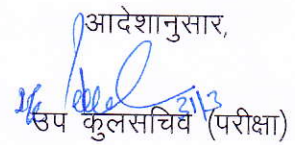 आदेशानुसार,
21/3
उप कुलसचिव (परीक्षा)